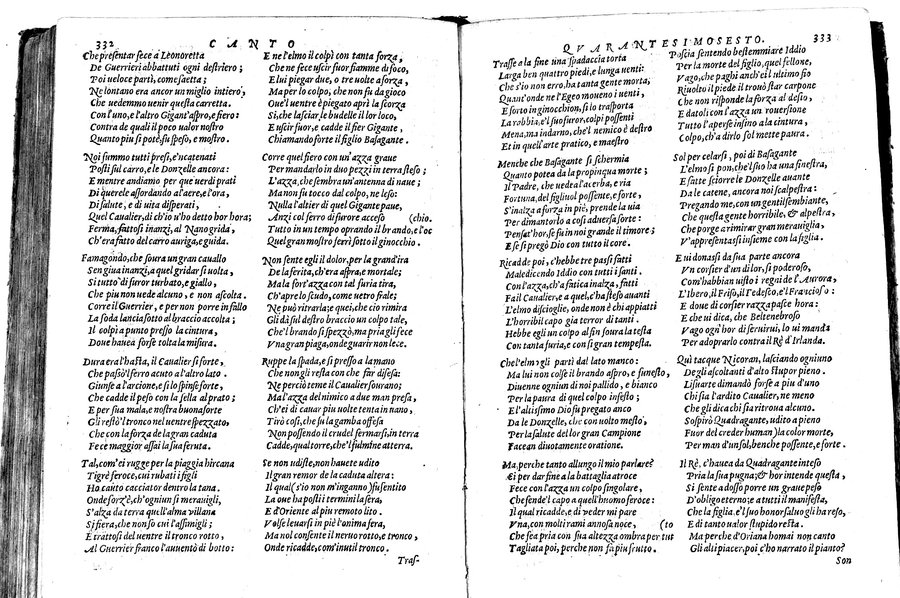 332 CANTO
Che presentar fece a Leonoretta
De Guerrieri abbatuti ogni destriero;
Poi veloce partì, come saetta;
Ne lontano era ancor un miglio intiero,
Che uedemmo uenir questa carretta.
Con l'uno, e l'altro Gigant'aspro, e fiero:
Contra de quali il poco ualor nostro
Quanto piu si potè, su speso, e mostro.
Noi summo tutti presi, e'ncatenati
Posti sul carro, e le Donzelle ancora:
E mentre andiamo per que uerdi prati
Di querele assordando al'aere, e l'ora,
Di salute, e di uita disperati,
Quel Caualier, di ch'io u'ho detto hor hora;
Ferma, fattosi inanzi, al Nano grida,
Ch'era fatto del carro auriga, e guida.
Famagondo, che soura un gran cauallo
Sen giua inanzi, a quel gridar si uolta,
Si tutto di furor turbato, e giallo,
Che piu non uede alcuno, e non ascolta.
Corre il Guerrier, e per non porre in fallo
La soda lancia sotto al braccio accolta;
Il colpì a punto presso la cintura,
Doue hauea forse tolta la misura.
Dura era l'hasta, il Caualier si forte,
Che passò'l ferro acuto al'altro lato.
Giunse a l'arcione, e si lo spinse forte,
Che cadde il peso con la sella al prato;
E per sua mala, e nostra buona sorte
Gli restò'l tronco nel uentre spezzato,
Che con la forza de la gran caduta
Fece maggior assai la sua feruta.
Tal, com'ei rugge per la piaggia hircana
Tigre feroce, cui rubati i figli
Ho cauto cacciator dentro la tana.
Onde forz'è, ch'ogniun si merauigli,
S'alza da terra quell'alma uillana
Si fiera, che non so cui l'assimigli;
E trattosi del uentre il tronco rotto,
Al Guerrier fianco l'auuentò di botto:
E ne l'elmo il colpì con tanta forza,
Che ne fece uscir suor fiamme di foco,
E lui piegar due, o tre uolte a forza,
Ma per lo colpo, che non fu da gioco
Oue'l uentre è piegato aprì la scorza
Sì, che lasciar le budelle il lor loco,
E uscir fuor, e cadde il fier Gigante,
Chiamando forte il figlio Basagante.
Corre quel fiero con un'azza graue
Per mandarlo in duo pezzi in terra steso;
L'azza, che sembra un'antenna di naue;
Ma non fu tocco dal colpo, ne leso
Nulla l'altier di quel Gigante paue,
Anzi col ferro di furore acceso (chio.
Tutto in un tempo oprando il brando, e l'oc
Quel gran mostro ferì sotto il ginocchio.
Non sente egli il dolor, per la grand'ira
De la ferita, ch'era aspra, e mortale;
Ma la fort'azza con tal furia tira,
Ch'apre lo scudo, come uetro frale;
Ne può ritrarla; e quei, che ciò rimira
Gli dà sul destro braccio un colpo tale,
Che'l brando si spezzò, ma pria gli fece
Vna gran piaga, onde guarir non lece.
Ruppe la spada, e si presso a la mano
Che non gli resta con che far difesa:
Ne perciò teme il Caualier sourano;
Ma l'azza del nimico a due man presa,
Ch'ei di cauar piu uolte tenta in uano,
Tirò così, che su la gamba offesa
Non possendo il crudel fermarsi, in terra
Cadde, qual torre, che'l fulmine atterra.
Se non udiste, non hauete udito
Il gran remor de la caduta altera:
Il qual (s'io non m'inganno) fu sentito
La oue ha posti i termini la sera,
E d'Oriente al piu remoto lito.
Volse leuarsi in piè l'anima fera,
Ma nol consente il neruo rotto, e tronco,
Onde ricadde, com'inutil tronco.
Tras-
QVARANTESIMOSESTO. 333
Trasse a la fine una spadaccia torta
Larga ben quattro piedi, e lunga uenti:
Che s'io non erro, ha tanta gente morta,
Quant'onde ne l'Egeo moueno i uenti,
E sorto in ginocchion, si lo trasporta
La rabbia, e'l suo furor, colpi possenti
Mena, ma indarno, che'l nemico è destro
Et in quell'arte pratico, e maestro
Mentre che Basagante si schermia
Quanto potea da la propinqua morte;
Il Padre, che uedea l'acerba, e ria
Fortuna, del figliuol possente, e forte,
S'inalza a forza in piè, prende la uia
Per dimantorlo a così aduersa sorte:
Pensat'hor, se fu in noi grande il timore;
E se si pregò Dio con tutto il core.
Ricadde poi, c'hebbe tre passi fatti
Maledicendo Iddio con tutti i santi.
Con l'azza, ch'a fatica inalza, fatti
Fa il Caualier, a quel, c'ha steso auanti
L'elmo discioglie, onde non ch'i appiatti
L'horribil capo gia terror di tanti.
Hebbe egli un colpo al fin soura la testa
Con tanta furia, e con si gran tempesta.
Che l'elmo gli partì dal lato manco:
Ma lui non colse il brando aspro, e funesto,
Diuenne ogniun di noi pallido, e bianco
Per la paura di quel colpo infesto;
E l'altissimo Dio fu pregato anco
Da le Donzelle, che con uolto mesto,
Per la salute del gran Campione
Facean diuotamente oratione.
Ma perche tanto allungo il mio parlare?
E ei per dar fine a la battaglia atroce
Fece con l'azza un colpo singolare,
Che fende'l capo a quell'huomo feroce:
Il qual ricadde, e di ueder mi pare
Vna, con molti rami annosa noce, (to
Che fea pria con sua altezza ombra per tut
Tagliata poi, perche non fa piu frutto.
Poscia sentendo bestemmiare Iddio
Per la morte del figlio, quel fellone,
Vago, che paghi anch'ei l'ultimo fio
Riuolto il piede il trouò star carpone
Che non risponde la forza al desio,
E datoli con l'azza un rouersione
Tutto l'aperse insino a la cintura,
Colpo, ch'a dirlo sol mette paura.
Sol per celarsi, poi di Basagante
L'elmo si pon, che'l suo ha una finestra,
E fatte sciorre le Donzelle auante
Da le catene, ancora noi scalpestra:
Pregando me, con un gentil sembiante,
Che questa gente horribile, & alpestra,
Che porge a rimirar gran merauiglia,
V'appresentassi insieme con la figlia.
E ui donassi da sua parte ancora
Vn corsier d'un di lor, si poderoso,
Com'habbian uisto i regni de l'Aurora,
L'Ibero, il Friso, il Tedesco, e'l Francioso:
E doue di corsier razza pasce hora:
E che ui dica, che Beltenebroso
Vago ogn'hor di seruirui, lo ui manda
Per adoprarlo contra il Rè d'Irlanda.
Quì tacque Nicoran, lasciando ogniuno
Degli ascoltanti d'alto stupor pieno.
Lisuarte dimandò forse a piu d'uno
Chi sia l'ardito Caualier, ne meno
Che gli dica chi sia ritroua alcuno.
Sospirò Quadragante, udito a pieno
Fuor del creder human) la color morte,
Per man d'un sol, benche possente, e forte.
Il Rè, c'hauea da Quadragante inteso
Pria la sua pugna; & hor intende questa,
Si sente a dosso porre un graue peso
D'obligo eterno; e a tutti il manifesta,
Che la figlia, e'l suo honor saluo gli ha reso,
E di tanto ualor stupido resta.
Ma perche d'Oriana homai non canto
Gli alti piacer, poi c'ho narrato il pianto?
Son